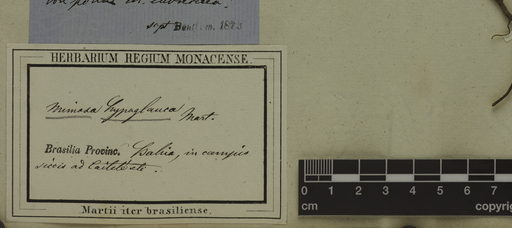 sept Benth. m. 1873
HERBARIUM REGIUM MONACENSE.
Mimosa hypoglauca Mart.
Brasilia Provinc. Bahia, in campis
siccis ad Caiteté etc.
Martii iter brasiliense.
0 1 2 3 4 5 6 7
cm copyrig